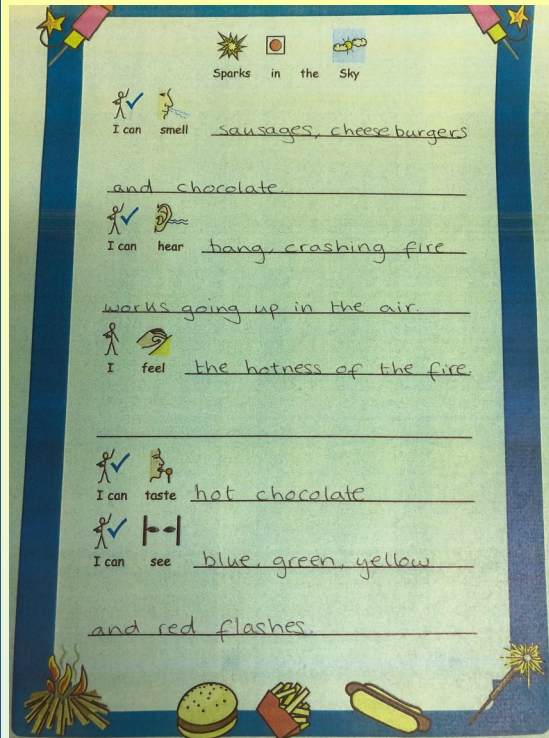 Sparks in the Sky
I can smell sausages, cheeseburgers
and chocolate.
I can hear bang, crashing fire
works going up in the air.
I feel the hotness of the fire.
I can taste hot chocolate
I can see blue, green, yellow
and red flashes.